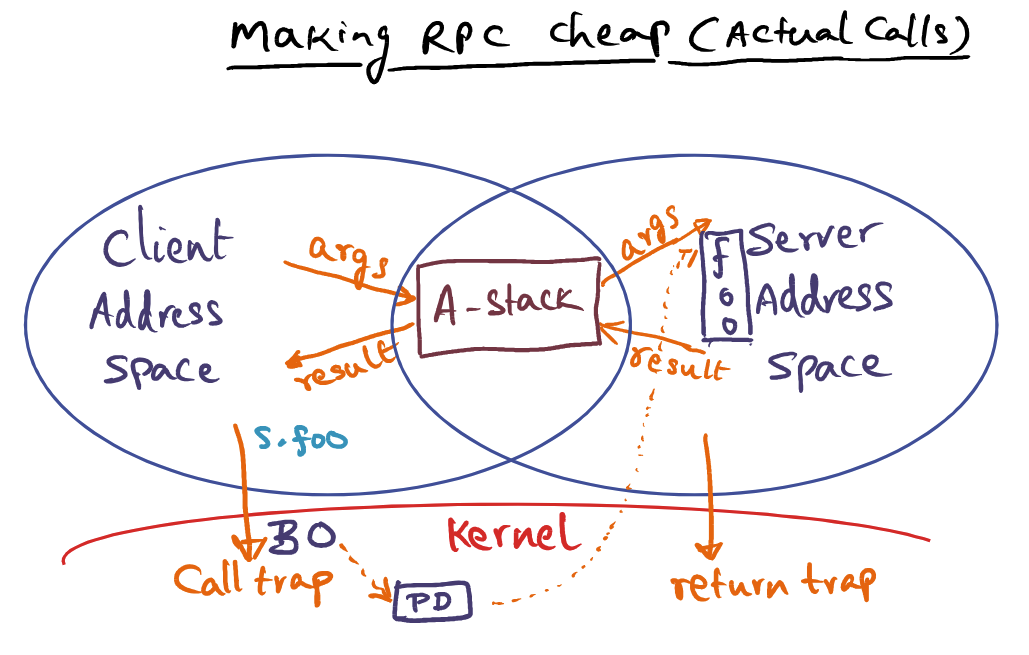 Making RPC cheap (Actual Calls)
Client
Address
Space
args
result
A-stack
args
result
foo
Server
Address
Space
S.foo
BO
Kernel
Call trap
PD
return trap